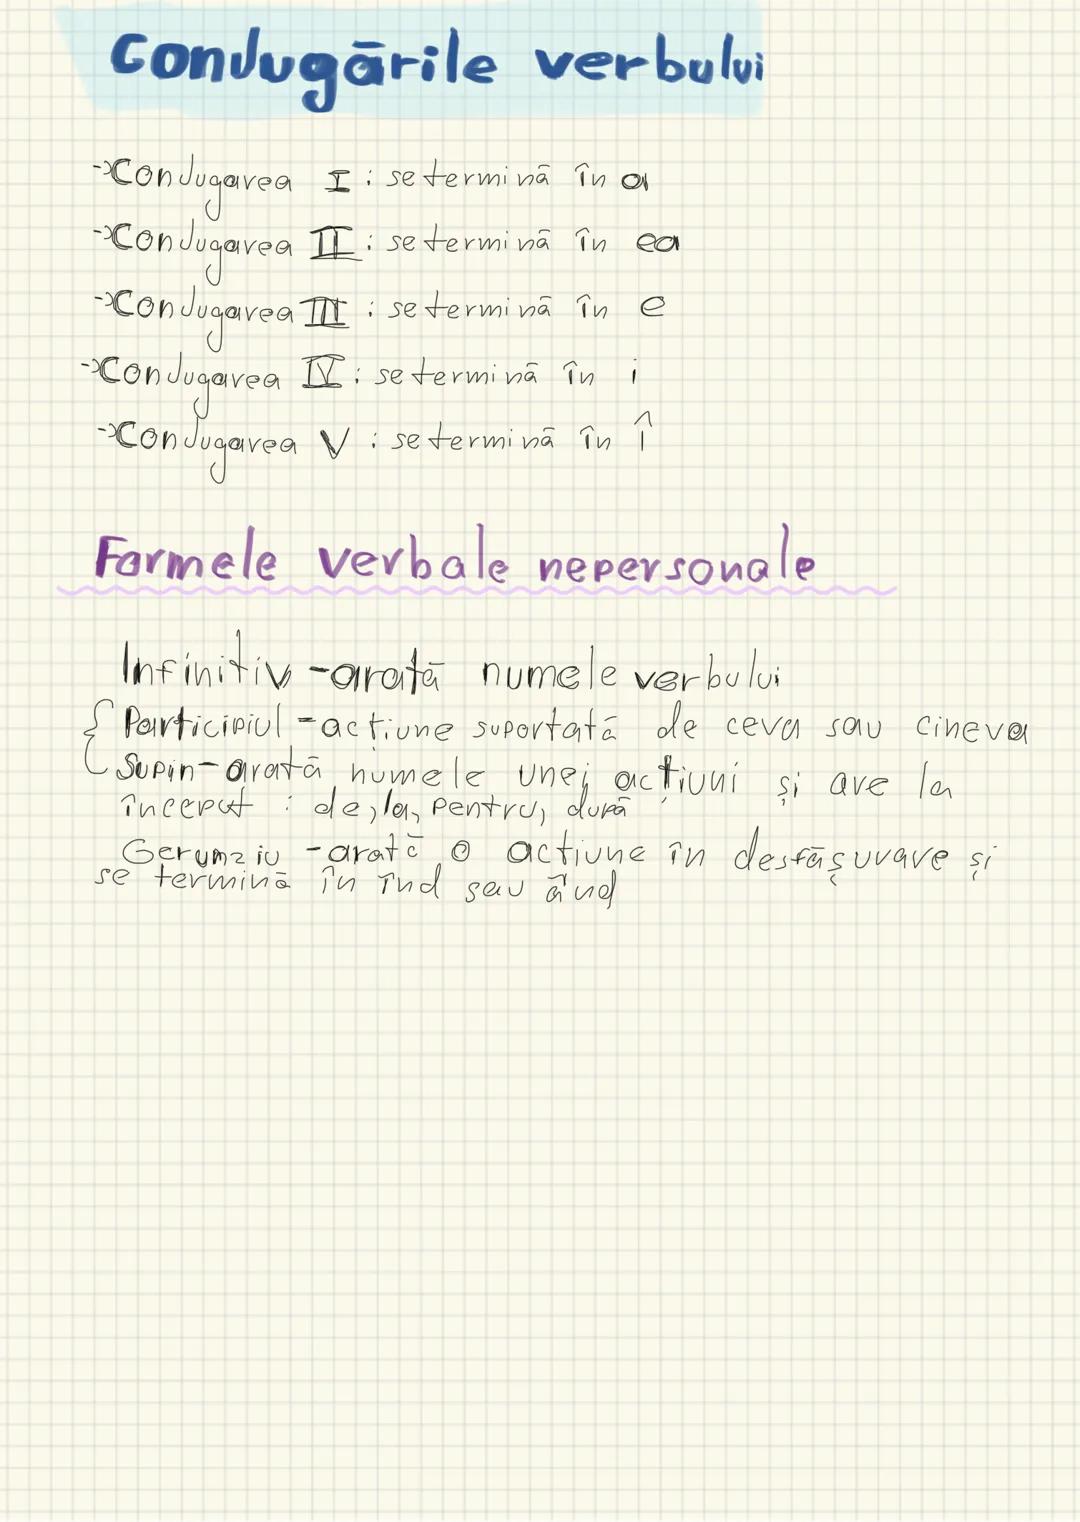 Conjugările verbului
->Conjugarea I : se termină în a
->Conjugarea II : se termină în ea
->Conjugarea III : se termină în e
->Conjugarea IV : se termină în i
->Conjugarea V : se termină în î
Formele verbale nepersonale
Infinitiv - arată numele verbului
Participiul - acțiune suportată de ceva sau cineva
Supin - arată numele unei acțiuni și are la
început : de, la, pentru, după
Gerunziu - arată o acțiune în desfășurare și
se termină în înd sau ând